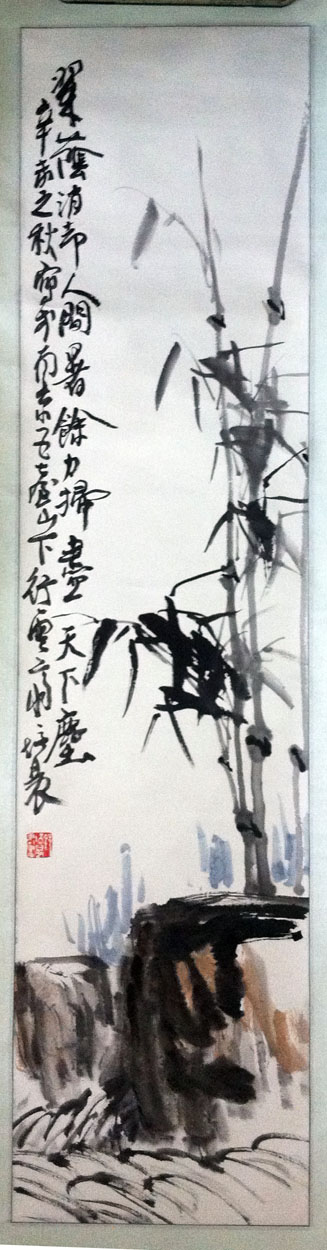 翠蔭消却人間暑餘力掃盡天下塵
辛未之秋寫於南京五臺山下行雲